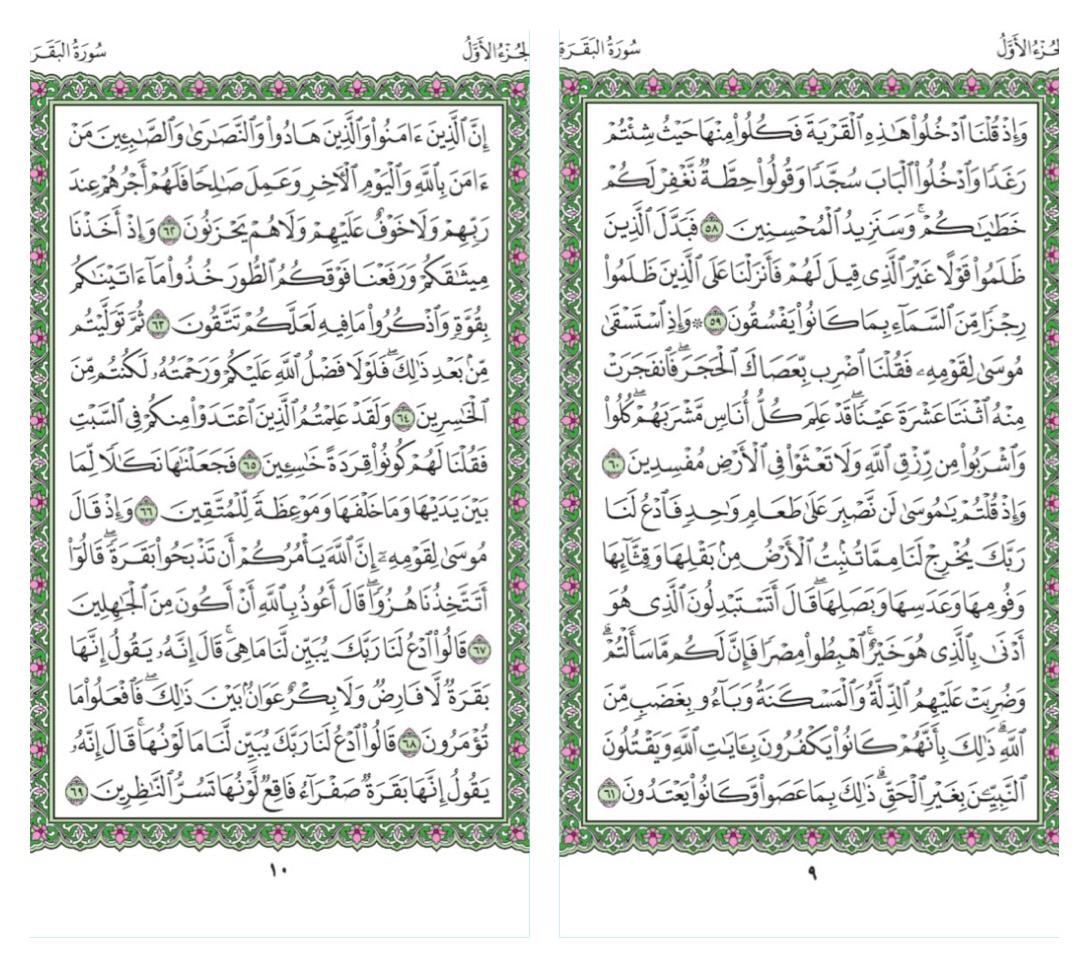 الجُزْءُ الأَوَّلُ
سُورَةُ البَقَرَةِ
وَإِذْ قُلْنَا ٱدْخُلُوا۟ هَٰذِهِ ٱلْقَرْيَةَ فَكُلُوا۟ مِنْهَا حَيْثُ شِئْتُمْ
رَغَدًا وَٱدْخُلُوا۟ ٱلْبَابَ سُجَّدًا وَقُولُوا۟ حِطَّةٌ نَّغْفِرْ لَكُمْ
خَطَٰيَٰكُمْ ۚ وَسَنَزِيدُ ٱلْمُحْسِنِينَ ٥٨ فَبَدَّلَ ٱلَّذِينَ
ظَلَمُوا۟ قَوْلًا غَيْرَ ٱلَّذِى قِيلَ لَهُمْ فَأَنزَلْنَا عَلَى ٱلَّذِينَ ظَلَمُوا۟
رِجْزًا مِّنَ ٱلسَّمَآءِ بِمَا كَانُوا۟ يَفْسُقُونَ ٥٩ ۞ وَإِذِ ٱسْتَسْقَىٰ
مُوسَىٰ لِقَوْمِهِۦ فَقُلْنَا ٱضْرِب بِّعَصَاكَ ٱلْحَجَرَ ۖ فَٱنفَجَرَتْ
مِنْهُ ٱثْنَتَا عَشْرَةَ عَيْنًا ۖ قَدْ عَلِمَ كُلُّ أُنَاسٍ مَّشْرَبَهُمْ ۖ كُلُوا۟
وَٱشْرَبُوا۟ مِن رِّزْقِ ٱللَّهِ وَلَا تَعْثَوْا۟ فِى ٱلْأَرْضِ مُفْسِدِينَ ٦٠
وَإِذْ قُلْتُمْ يَٰمُوسَىٰ لَن نَّصْبِرَ عَلَىٰ طَعَامٍ وَٰحِدٍ فَٱدْعُ لَنَا
رَبَّكَ يُخْرِجْ لَنَا مِمَّا تُنۢبِتُ ٱلْأَرْضُ مِنۢ بَقْلِهَا وَقِثَّآئِهَا
وَفُومِهَا وَعَدَسِهَا وَبَصَلِهَا ۖ قَالَ أَتَسْتَبْدِلُونَ ٱلَّذِى هُوَ
أَدْنَىٰ بِٱلَّذِى هُوَ خَيْرٌ ۚ ٱهْبِطُوا۟ مِصْرًا فَإِنَّ لَكُم مَّا سَأَلْتُمْ ۗ
وَضُرِبَتْ عَلَيْهِمُ ٱلذِّلَّةُ وَٱلْمَسْكَنَةُ وَبَآءُو بِغَضَبٍ مِّنَ
ٱللَّهِ ۗ ذَٰلِكَ بِأَنَّهُمْ كَانُوا۟ يَكْفُرُونَ بِـَٔايَٰتِ ٱللَّهِ وَيَقْتُلُونَ
ٱلنَّبِيِّـۧنَ بِغَيْرِ ٱلْحَقِّ ۗ ذَٰلِكَ بِمَا عَصَوا۟ وَّكَانُوا۟ يَعْتَدُونَ ٦١
٩
الجُزْءُ الأَوَّلُ
سُورَةُ البَقَرَةِ
إِنَّ ٱلَّذِينَ ءَامَنُوا۟ وَٱلَّذِينَ هَادُوا۟ وَٱلنَّصَٰرَىٰ وَٱلصَّٰبِـِٔينَ مَنْ
ءَامَنَ بِٱللَّهِ وَٱلْيَوْمِ ٱلْءَاخِرِ وَعَمِلَ صَٰلِحًا فَلَهُمْ أَجْرُهُمْ عِندَ
رَبِّهِمْ وَلَا خَوْفٌ عَلَيْهِمْ وَلَا هُمْ يَحْزَنُونَ ٦٢ وَإِذْ أَخَذْنَا
مِيثَٰقَكُمْ وَرَفَعْنَا فَوْقَكُمُ ٱلطُّورَ خُذُوا۟ مَآ ءَاتَيْنَٰكُم
بِقُوَّةٍ وَٱذْكُرُوا۟ مَا فِيهِ لَعَلَّكُمْ تَتَّقُونَ ٦٣ ثُمَّ تَوَلَّيْتُم
مِّنۢ بَعْدِ ذَٰلِكَ ۖ فَلَوْلَا فَضْلُ ٱللَّهِ عَلَيْكُمْ وَرَحْمَتُهُۥ لَكُنتُم مِّنَ
ٱلْخَٰسِرِينَ ٦٤ وَلَقَدْ عَلِمْتُمُ ٱلَّذِينَ ٱعْتَدَوْا۟ مِنكُمْ فِى ٱلسَّبْتِ
فَقُلْنَا لَهُمْ كُونُوا۟ قِرَدَةً خَٰسِـِٔينَ ٦٥ فَجَعَلْنَٰهَا نَكَٰلًا لِّمَا
بَيْنَ يَدَيْهَا وَمَا خَلْفَهَا وَمَوْعِظَةً لِّلْمُتَّقِينَ ٦٦ وَإِذْ قَالَ
مُوسَىٰ لِقَوْمِهِۦٓ إِنَّ ٱللَّهَ يَأْمُرُكُمْ أَن تَذْبَحُوا۟ بَقَرَةً ۖ قَالُوٓا۟
أَتَتَّخِذُنَا هُزُوًا ۖ قَالَ أَعُوذُ بِٱللَّهِ أَنْ أَكُونَ مِنَ ٱلْجَٰهِلِينَ
٦٧ قَالُوا۟ ٱدْعُ لَنَا رَبَّكَ يُبَيِّن لَّنَا مَا هِىَ ۚ قَالَ إِنَّهُۥ يَقُولُ إِنَّهَا
بَقَرَةٌ لَّا فَارِضٌ وَلَا بِكْرٌ عَوَانٌۢ بَيْنَ ذَٰلِكَ ۖ فَٱفْعَلُوا۟ مَا
تُؤْمَرُونَ ٦٨ قَالُوا۟ ٱدْعُ لَنَا رَبَّكَ يُبَيِّن لَّنَا مَا لَوْنُهَا ۚ قَالَ إِنَّهُۥ
يَقُولُ إِنَّهَا بَقَرَةٌ صَفْرَآءُ فَاقِعٌ لَّوْنُهَا تَسُرُّ ٱلنَّٰظِرِينَ ٦٩
١٠